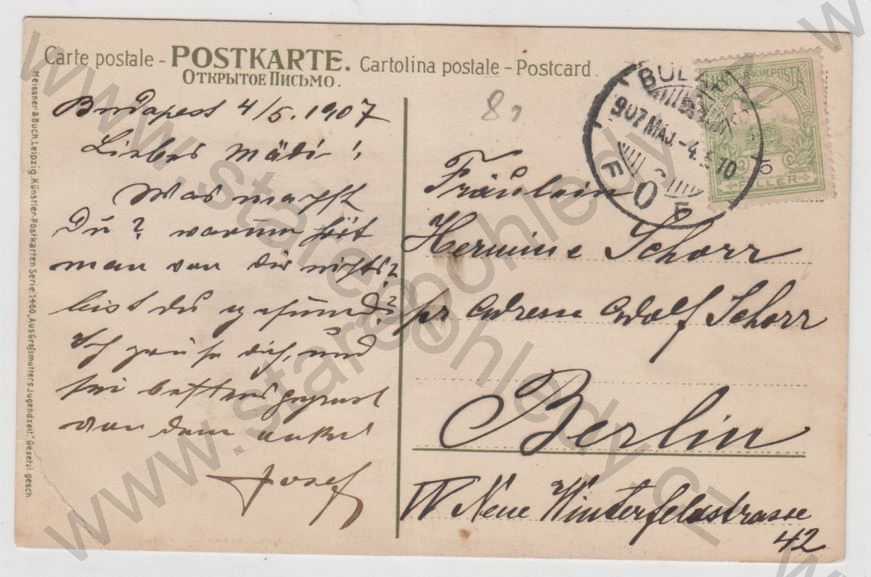 Carte postale - POSTKARTE. Cartolina postale - Postcard.
Открытое Письмо.
Budapest 4/5. 1907
Liebes Mädi!
Was machst
Du? warum hört
man von dir nichts?
bist du gesund?
Ich grüße dich, und
sei bestens gegrüsst
von dem onkel
Josef
8,
Fräulein
Hermine Schorr
pr adresse Adolf Schorr
Berlin
W Neue Winterfeldstrasse
42
BUD
907 MÁJ. -4.
10
F O F
POSTA
5
FILLER
Meissner & Buch, Leipzig, Künstler-Postkarten Serie 1460, "Aus Großmutters Jugendzeit" Gesetzl. gesch.
www.starepohledy.cz